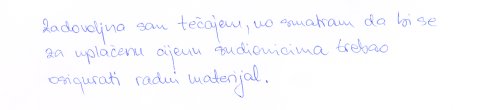 Zadovoljna sam tečajem, no smatram da bi se
za uplaćenu cijenu sudionicima trebao
osigurati radni materijal.